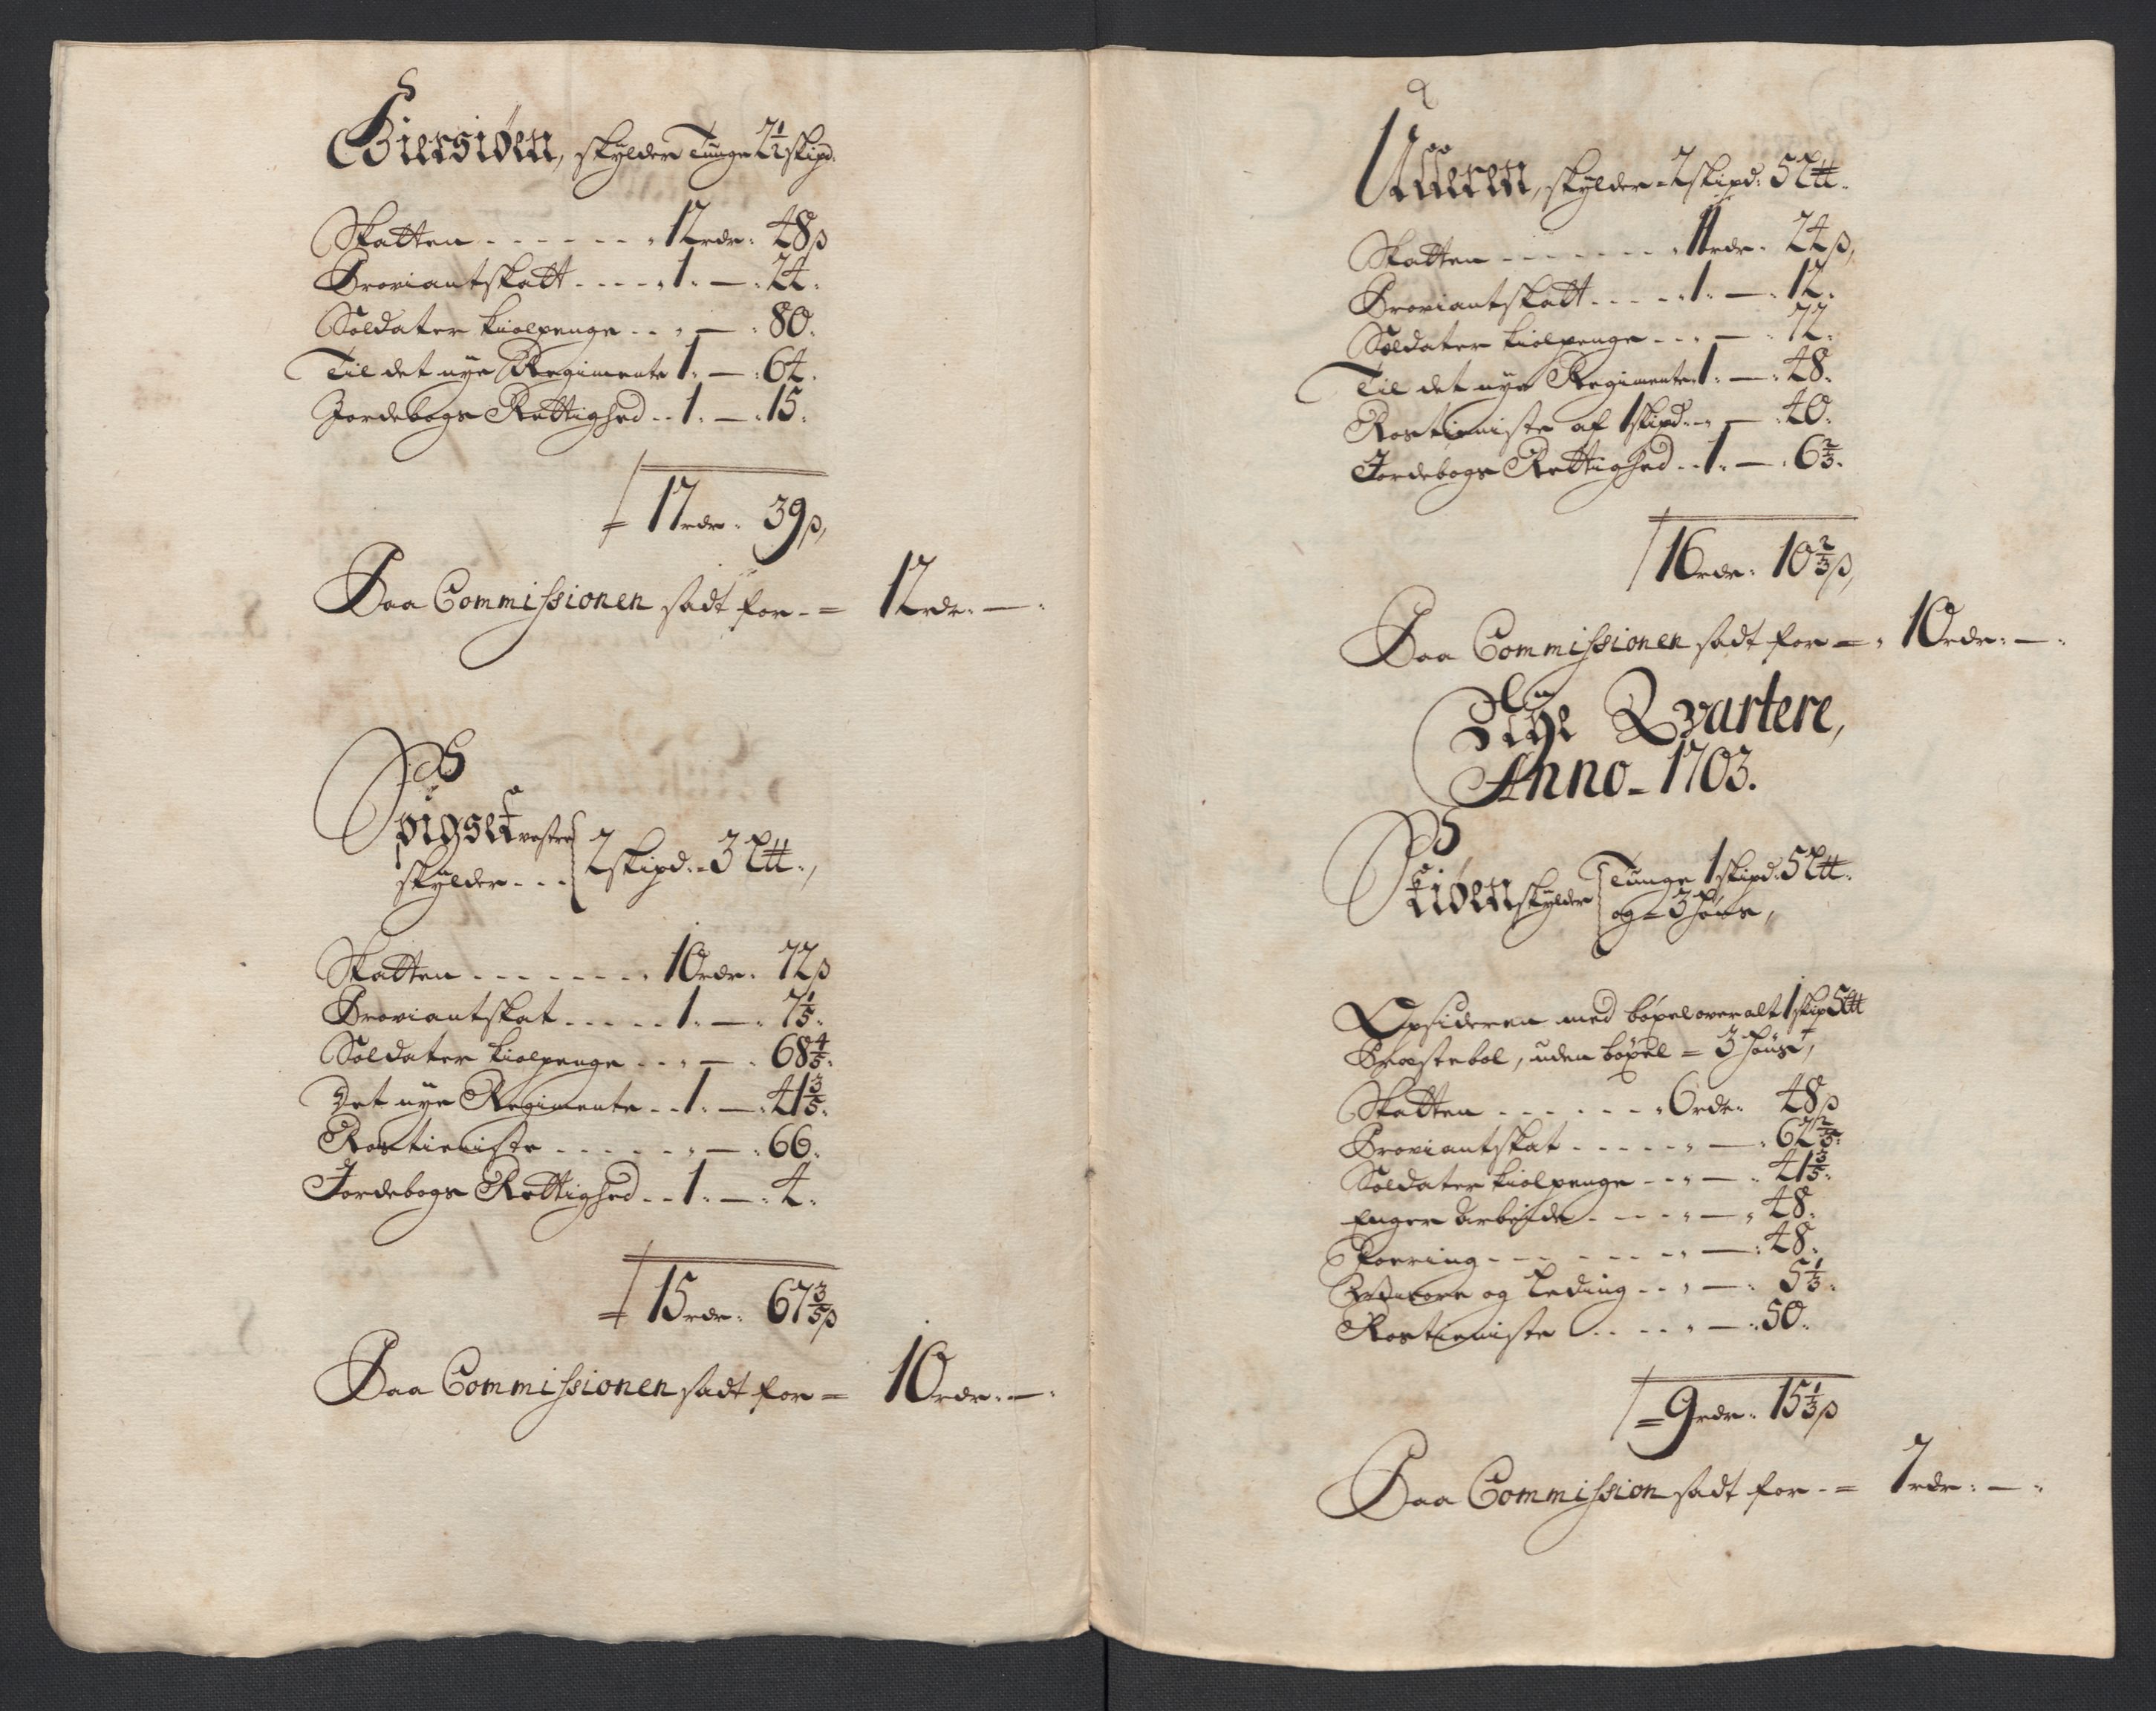 Giersiøen, skylder Tunge 2½ skipd:
Skatten - - - - - - - 12 rdr: 48 ß
Proviantskatt - - - - 1: — : 24:
Soldater kiolpenge - - : — : 80:
Til det nye Regimente 1: — : 64:
Jordebogs Rettighed - - 1: — : 15:
= 17 rdr: 39 ß,
Paa Commissionen sadt for - = 12 rdr: — :
Spigset vestre
skylder - - - 2 skipd: - 3 L℔:,
Skatten - - - - - - - 10 rdr: 72 ß
Proviantskat - - - - - 1: — : 7 1/5:
Soldater kiolpenge - - - : — : 68 4/5:
Det nye Regimente - - 1: — : 41 3/5:
Rostieniste - - - - - - : — : 66:
Jordebogs Rettighed - - 1: — : 4:
= 15 rdr: 67 3/5 ß
Paa Commissionen sadt for = 10 rdr: — :
skylder - 2 skipd: 5 L℔:
Skatten - - - - - - - 11 rdr: 24 ß,
Proviantskatt - - - - - 1: — : 12:
Soldater kiolpenge - - - : — : 72:
Til det nye Regimente 1: — : 48:
Rostieniste af 1 skipd: - : — : 40:
Jordebogs Rettighed - - 1: — : 6 2/3:
16 rdr: 10 2/3 ß,
Paa Commissionen sadt for = : 10 rdr: — :
Nye Qvartere,
Anno - 1703.
skylder Tunge 1 skipd: 5 L℔:
og = 3
Opsideren med bøxel over alt 1 skip 5 L℔
Præstebol, uden bøxel = 3
Skatten - - - - - - - 6 rdr: 48 ß
Proviantskat - - - - - : — : 62 2/5:
Soldater kiolpenge - - - : — : 41 3/5:
Enger Arbeide - - - - : — : 48:
Foering - - - - - - - : — : 48:
og Leding - - : — : 5 1/3:
Rostieniste - - - - : — : 50:
= 9 rdr: 15 1/3 ß
Paa Commission sadt for - = 7 rdr: — :